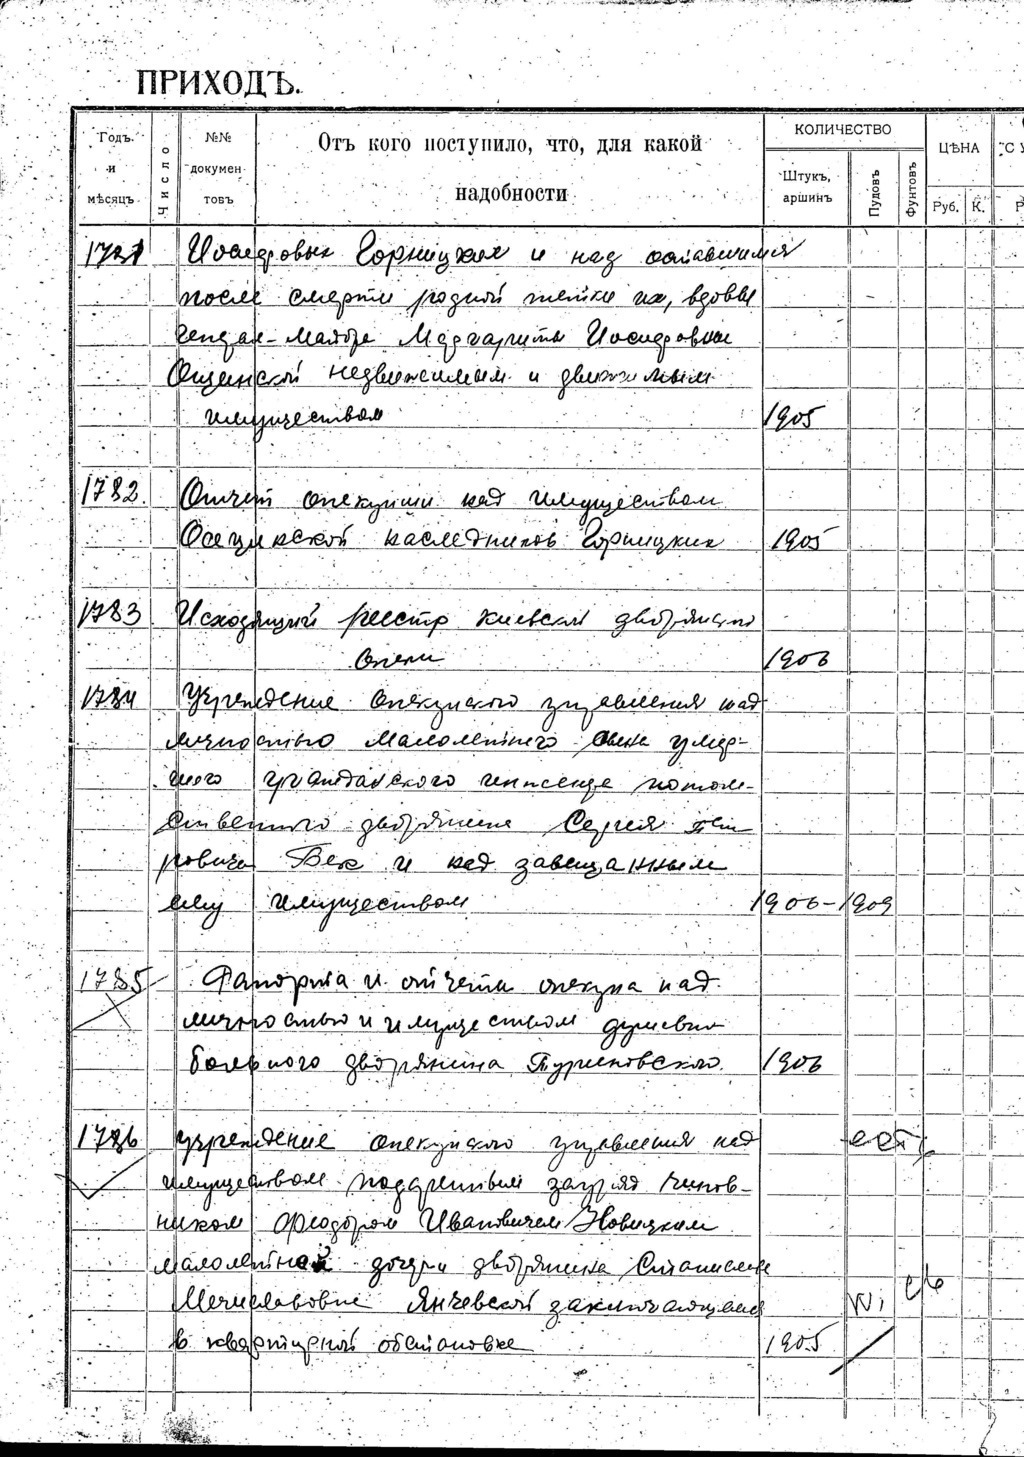 ПРИХОДЪ.
Годъ и мѣсяцъ
Число
№№ документовъ
Отъ кого поступило, что, для какой надобности
КОЛИЧЕСТВО
Штукъ, аршинъ
Пудовъ
Фунтовъ
ЦѢНА
Руб. К.
1781 Иосифовых Горницких и над оставшимся
после смерти родной тетки их, вдовы
генерал-майора Маргариты Иосифовны
Ощинской недвижимым и движимым
имуществом 1905
1782. Отчет опекунши над имуществом
Осецинской наследников Горницких 1905
1783 Исходящий реестр Киевской дворянской
опеки 1906
1784 Учреждение опекунского управления над
личностью малолетнего сына умер-
шего гражданского инженера потом-
ственного дворянина Сергея Пет
ровича Бек и над завещанным
ему имуществом 1906-1909
1785 Рапорта и отчеты опекуна над
личностью и имуществом душевно
больного дворянина Туршовского 1906
1786 учреждение опекунского управления над
имуществом подаренным зауряд чинов-
ником Феодором Ивановичем Новицким
малолетней дочери дворянина Станиславе
Мечиславовне Янчевской заключающемся
в квартирной обстановке 1905